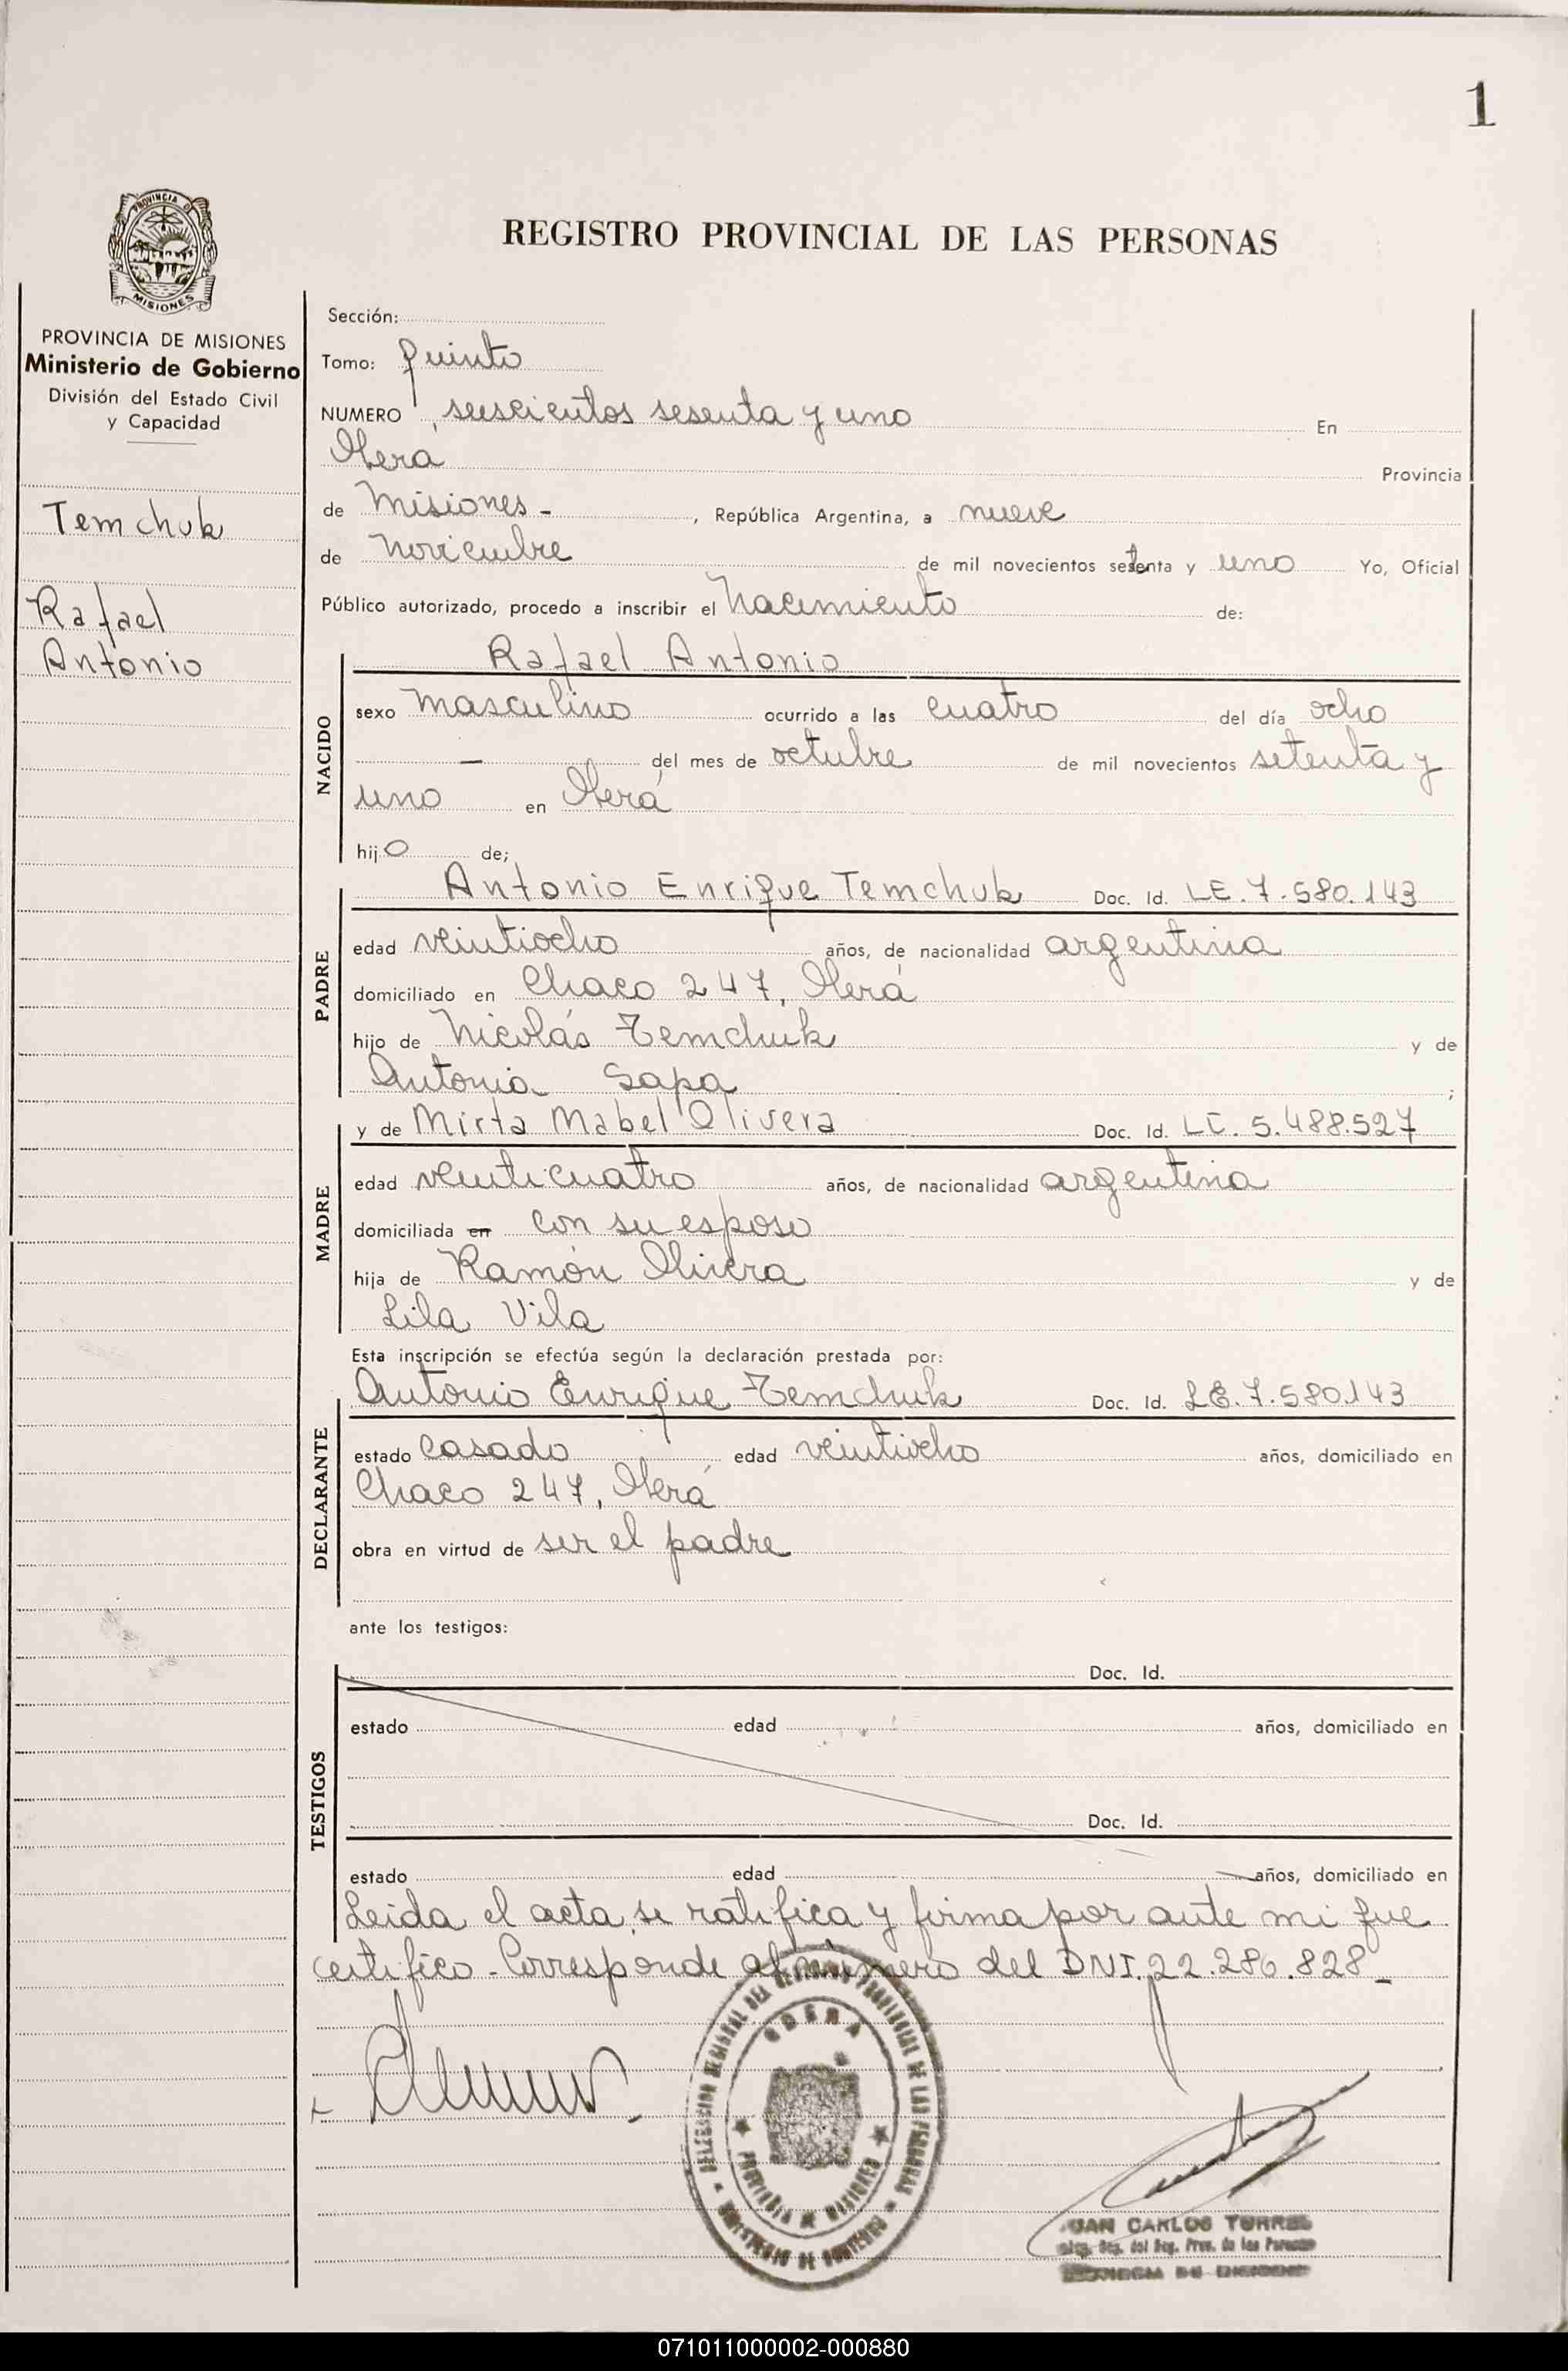 1
PROVINCIA DE
MISIONES
REGISTRO PROVINCIAL DE LAS PERSONAS
PROVINCIA DE MISIONES
Ministerio de Gobierno
División del Estado Civil
y Capacidad
Temchuk
Rafael
Antonio
Sección:
Tomo: quinto
NUMERO seiscientos sesenta y uno En
Oberá Provincia
de Misiones - , República Argentina, a nueve
de noviembre de mil novecientos setenta y uno Yo, Oficial
Público autorizado, procedo a inscribir el nacimiento de:
NACIDO
Rafael Antonio
sexo masculino ocurrido a las cuatro del día ocho
— del mes de octubre de mil novecientos setenta y
uno en Oberá
hijo de;
PADRE
Antonio Enrique Temchuk Doc. Id. LE. 7.580.143
edad veintiocho años, de nacionalidad argentina
domiciliado en Chaco 247, Oberá
hijo de Nicolás Temchuk y de
Antonia Sapa ;
MADRE
y de Mirta Mabel Olivera Doc. Id. LC. 5.488.527
edad veinticuatro años, de nacionalidad argentina
domiciliada en con su esposo
hija de Ramón Olivera y de
Lila Vila
Esta inscripción se efectúa según la declaración prestada por:
DECLARANTE
Antonio Enrique Temchuk Doc. Id. LE. 7.580.143
estado casado edad veintiocho años, domiciliado en
Chaco 247, Oberá
obra en virtud de ser el padre
ante los testigos:
TESTIGOS
Doc. Id.
estado edad años, domiciliado en
Doc. Id.
estado edad años, domiciliado en
Leida el acta, se ratifica y firma por ante mi que
certifico - Corresponde al número del DNI. 22.286.828 -
DELEGACION DEL REGISTRO PROVINCIAL DE LAS PERSONAS
OBERA
PROVINCIA DE MISIONES
MINISTERIO DE GOBIERNO
JUAN CARLOS TORRES
del Reg. Prov. de las Personas
071011000002-000880